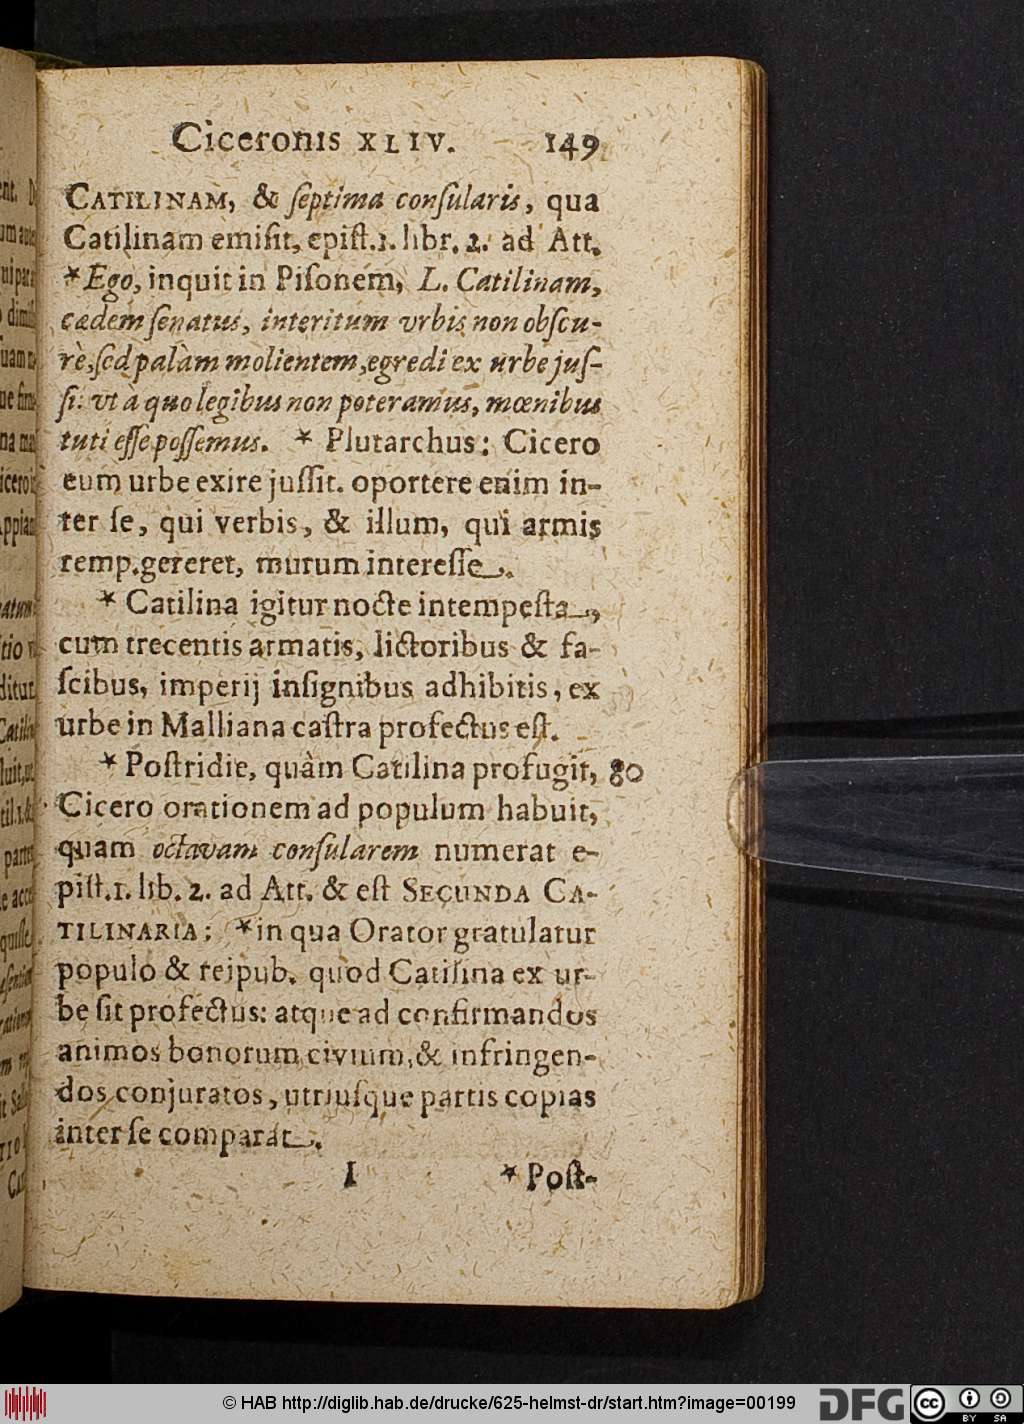 Ciceronis XLIV. 149
CATILINAM, & ſeptima conſularis, qua
Catilinam emiſit, epiſt.1. libr. 2. ad Att.
*Ego, inquit in Piſonem, L. Catilinam,
cædem ſenatus, interitum vrbis non obſcu-
rè, ſed palàm molientem, egredi ex urbe juſ-
ſi: vt à quo legibus non poteramus, mœnibus
tuti eſſe poſſemus. * Plutarchus: Cicero
eum urbe exire juſſit. oportere enim in-
ter ſe, qui verbis, & illum, qui armis
remp. gereret, murum intereſſe.
* Catilina igitur nocte intempeſta,
cum trecentis armatis, lictoribus & fa-
ſcibus, imperij inſignibus adhibitis, ex
urbe in Malliana caſtra profectus eſt.
* Poſtridie, quàm Catilina profugit, 80
Cicero orationem ad populum habuit,
quam octavam conſularem numerat e-
piſt.1. lib. 2. ad Att. & eſt SECUNDA CA-
TILINARIA: *in qua Orator gratulatur
populo & reipub. quod Catilina ex ur-
be ſit profectus: atque ad confirmandos
animos bonorum civium, & infringen-
dos conjuratos, utriuſque partis copias
inter ſe comparat.
I * Poſt-
© HAB http://diglib.hab.de/drucke/625-helmst-dr/start.htm?image=00199
DFG cc BY SA